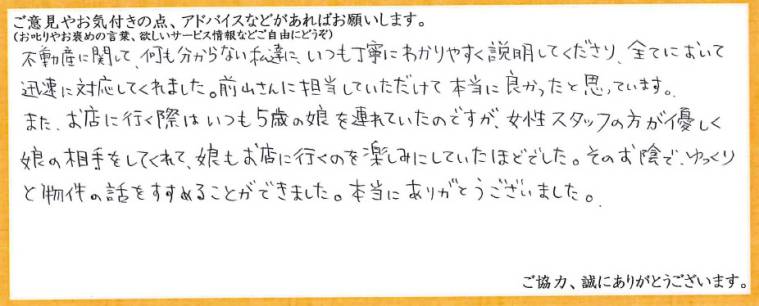 ご意見やお気付きの点、アドバイスなどがあればお願いします。
(お叱りやお褒めの言葉、欲しいサービス情報などご自由にどうぞ)
不動産に関して、何も分からない私達に、いつも丁寧にわかりやすく説明してくださり、全てにおいて
迅速に対応してくれました。前山さんに担当していただけて本当に良かったと思っています。
また、お店に行く際はいつも5歳の娘を連れていたのですが、女性スタッフの方が優しく
娘の相手をしてくれて、娘もお店に行くのを楽しみにしていたほどでした。そのお陰で、ゆっくり
と物件の話をすすめることができました。本当にありがとうございました。
ご協力、誠にありがとうございます。